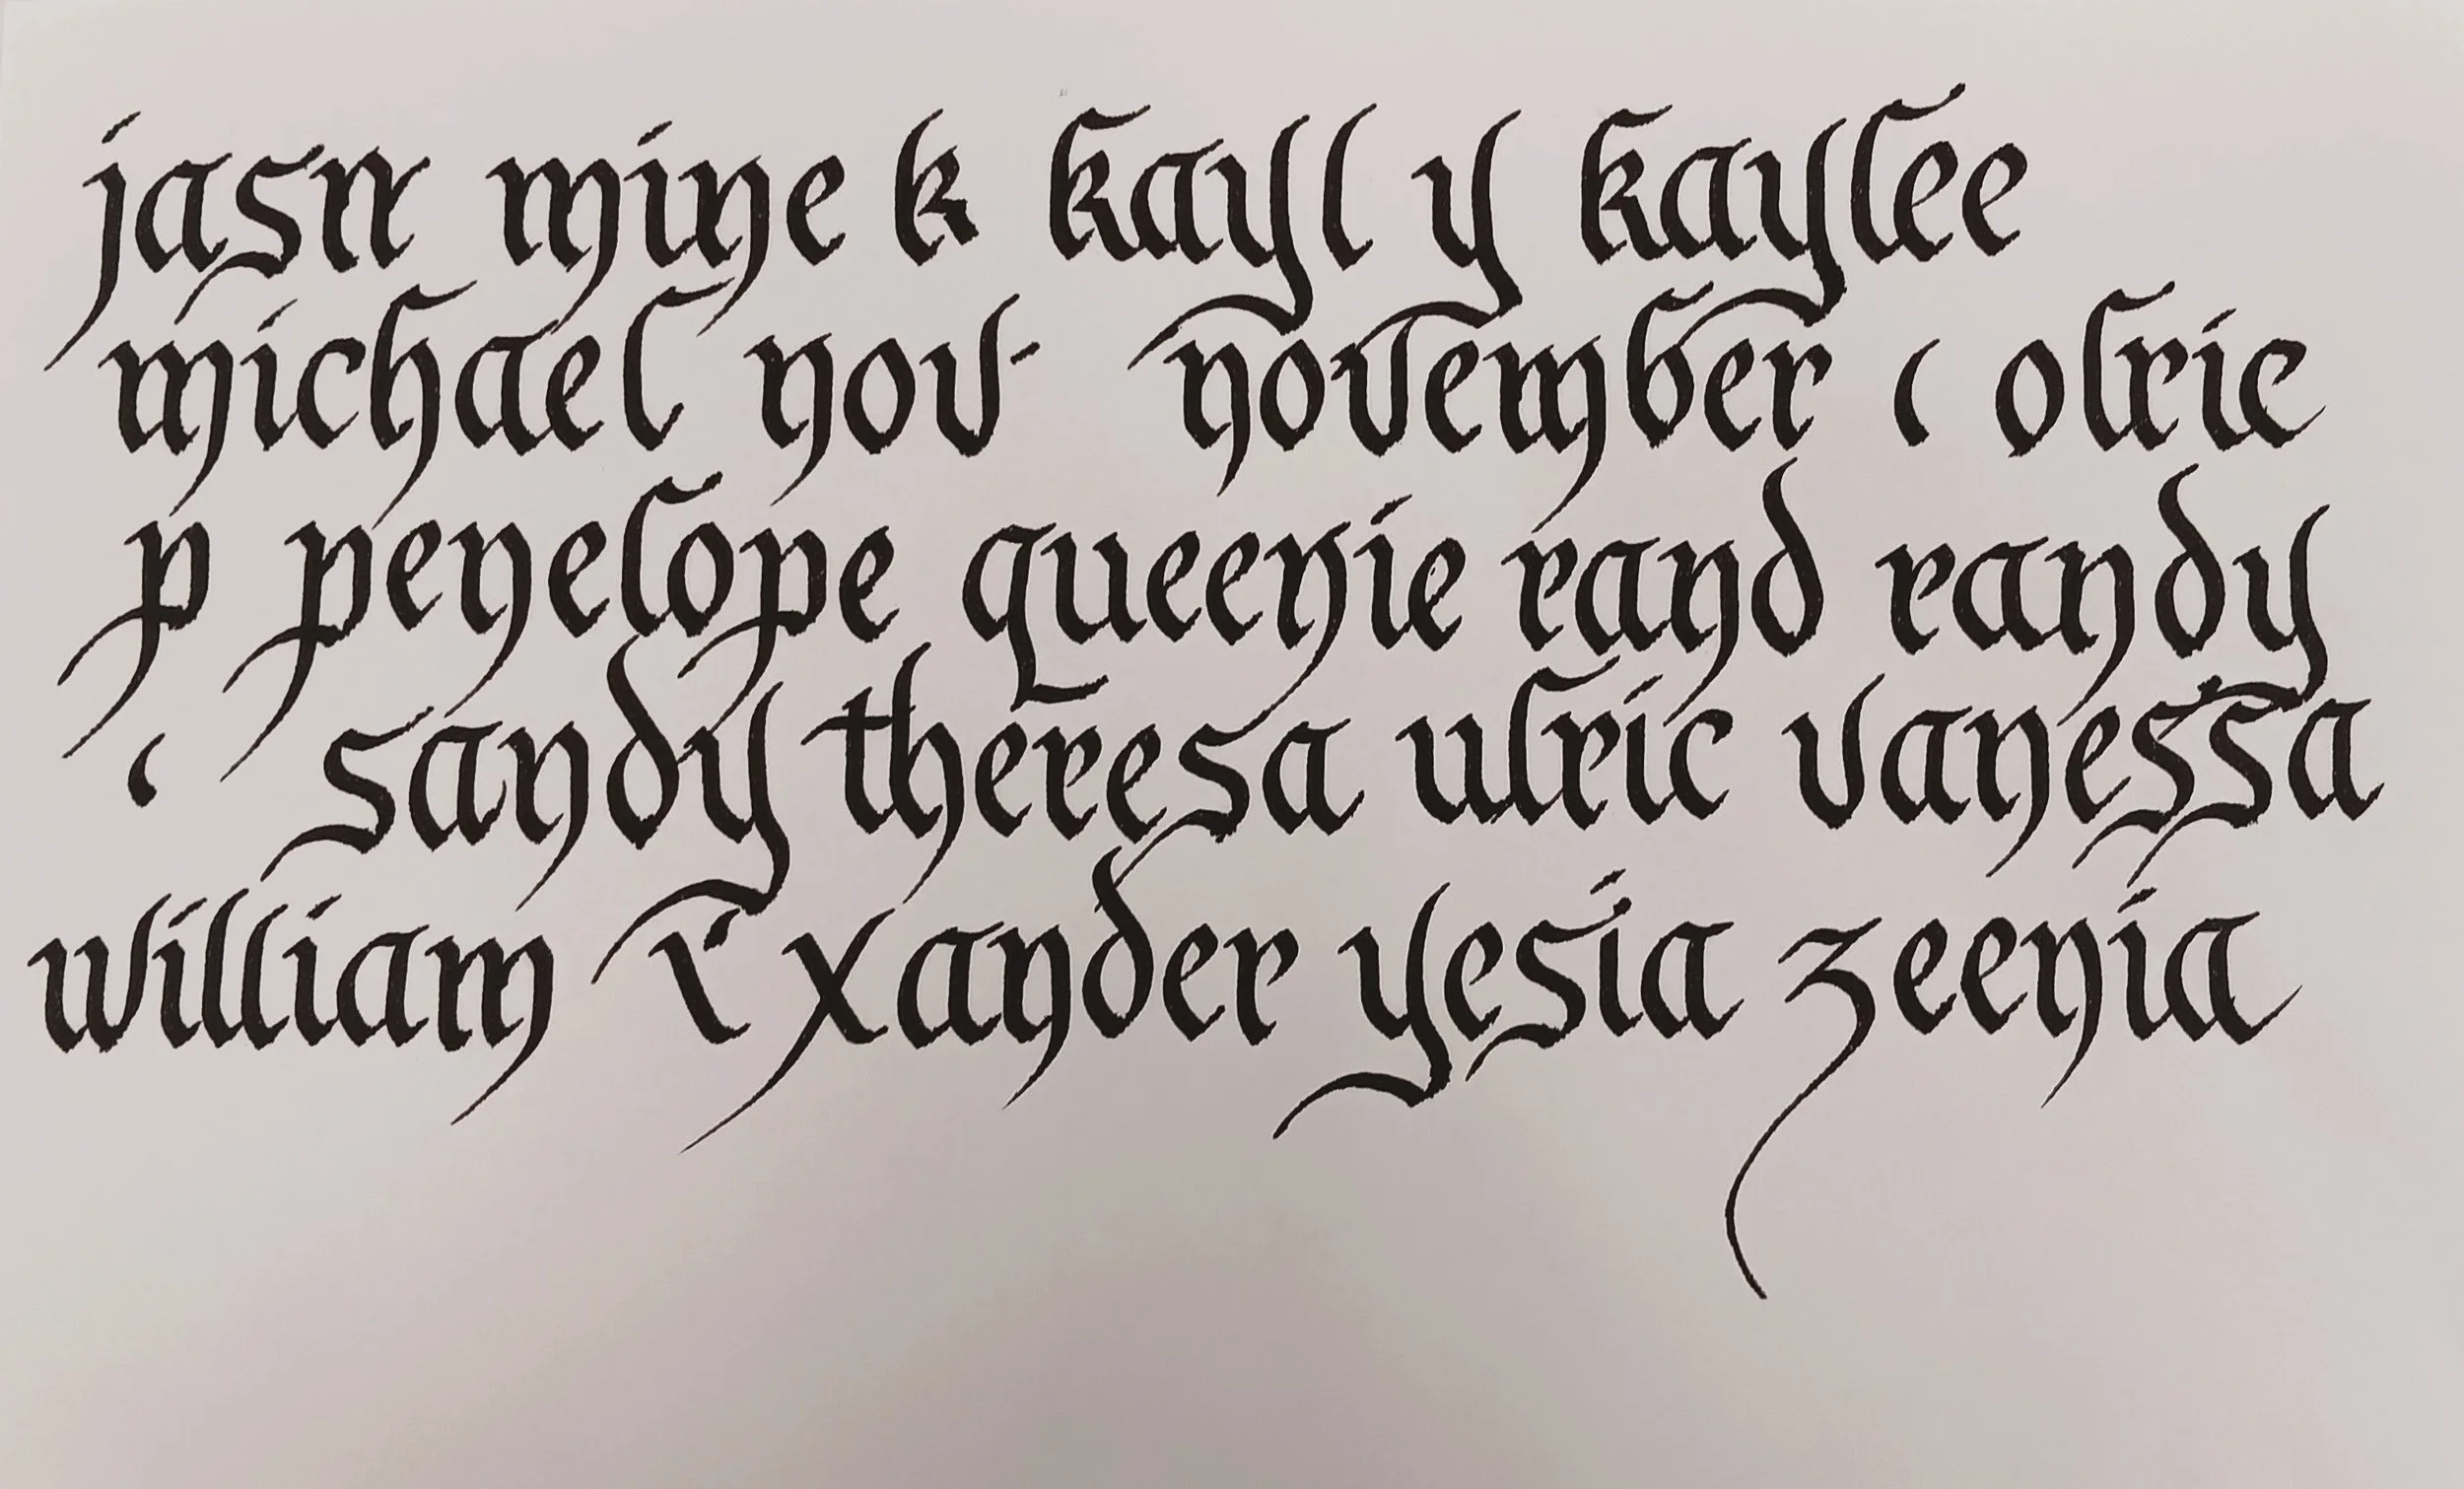 jasn mine k kayl y kaylee
michael nov november c olric
p penelope queenie rand randy
c sandy theresa ulric vanessa
william i xander yesia zeenia